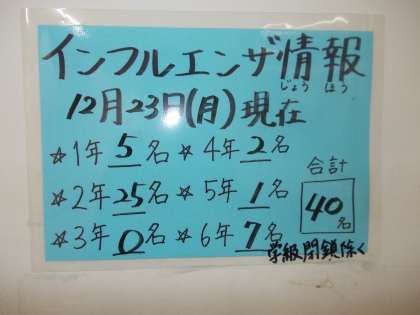 インフルエンザ情報
じょう ほう
12月23日(月)現在
☆1年 5名 ☆4年 2名
☆2年 25名 ☆5年 1名
☆3年 0名 ☆6年 7名
合計
40名
学級閉鎖除く